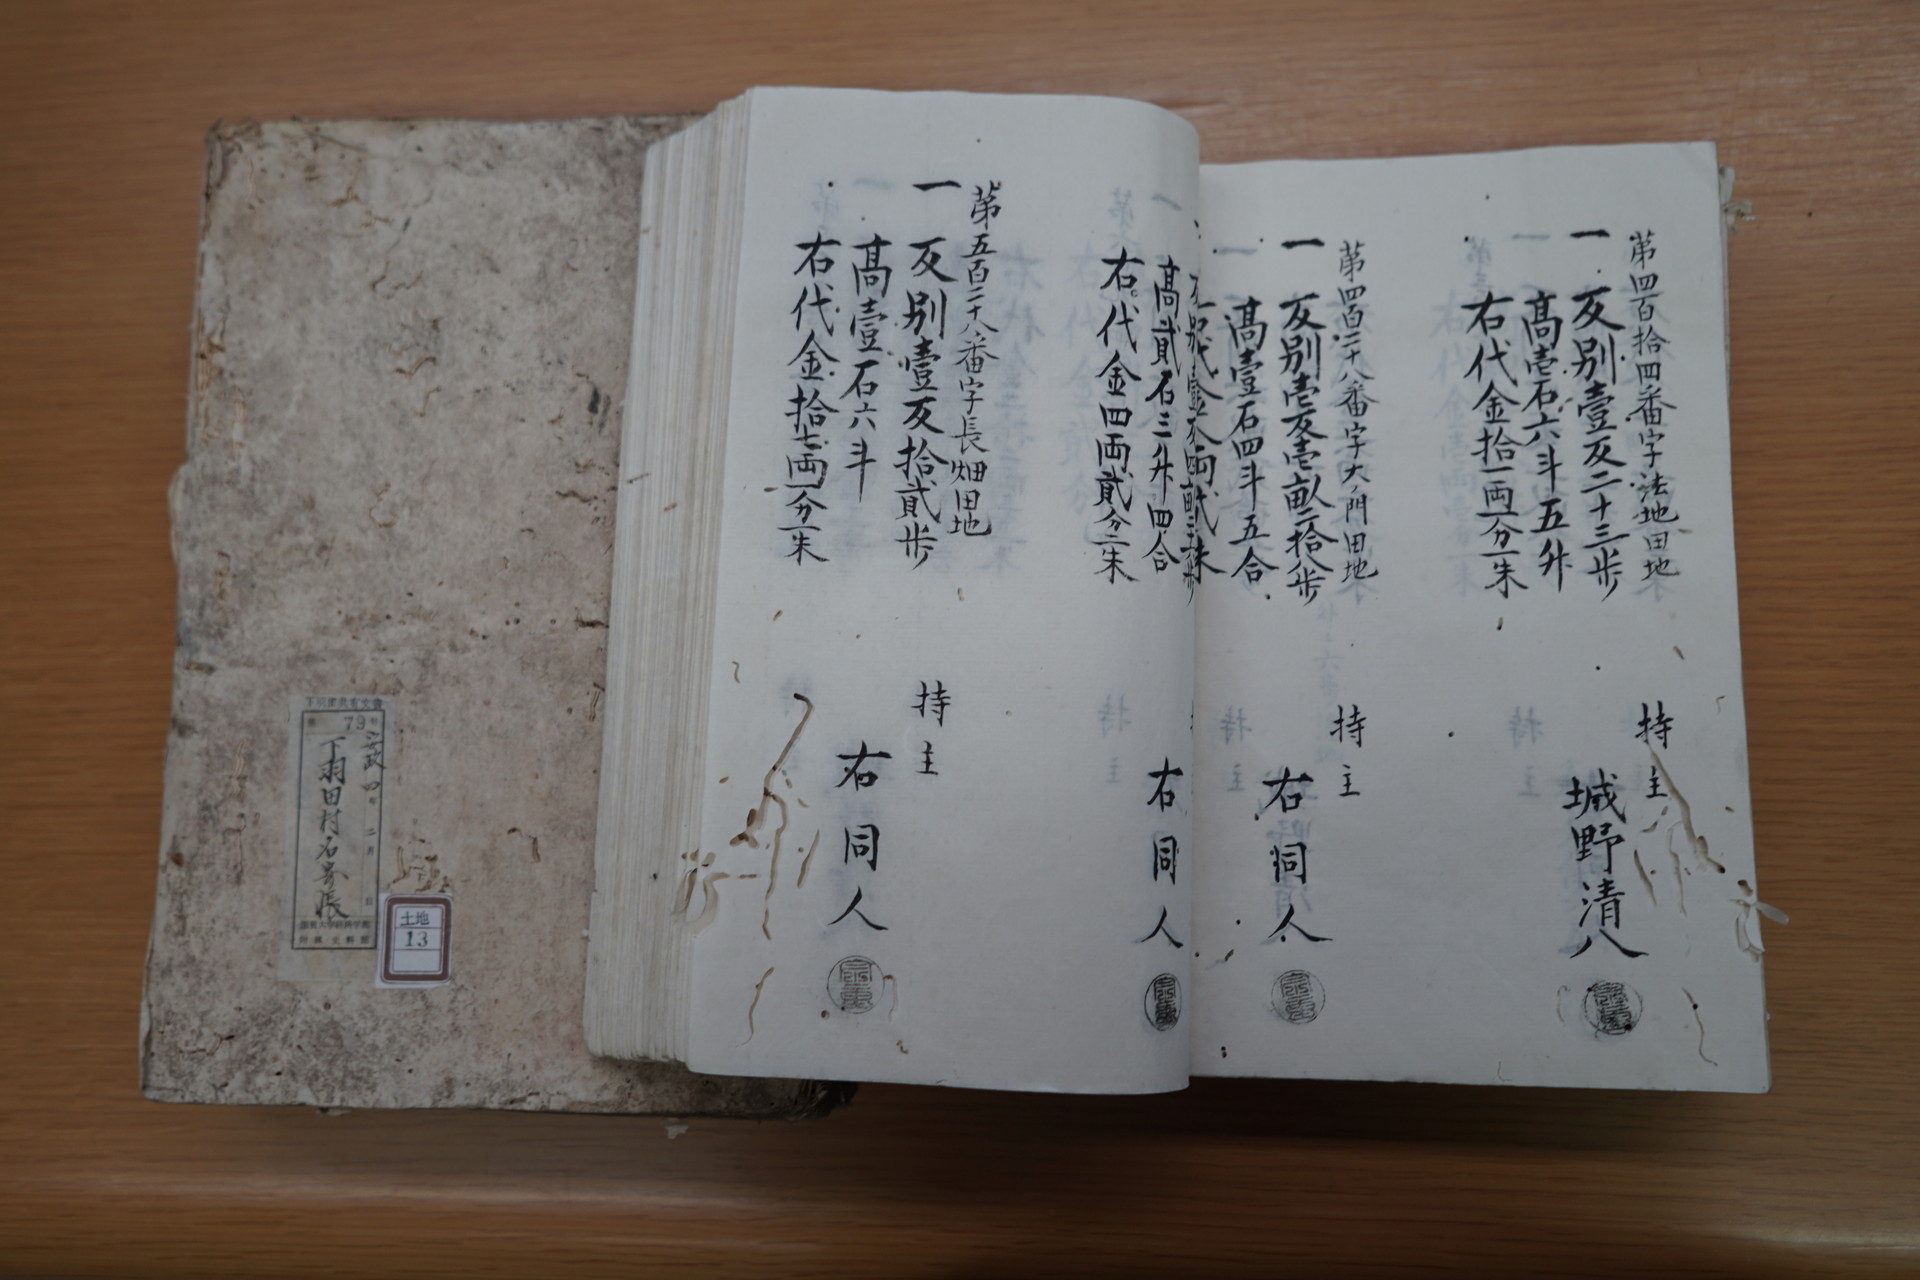 第四百拾四番字法地田地
一 反別壹反二十三歩
高壱石六斗五升
右代金拾一両一分一朱
持主
城野清八
第四百二十八番字大ノ門田地
一 反別壱反壱畝二拾歩
高壹石四斗五合
持主
右同人
高貳石三升四合
右代金四両貳分二朱
右同人
第五百二十八番字長畑田地
一 反別壹反拾貳歩
高壹石六斗
右代金拾七両一分一朱
持主
右同人
79号
安政四年二月 日
下羽田村名寄帳
土地
13